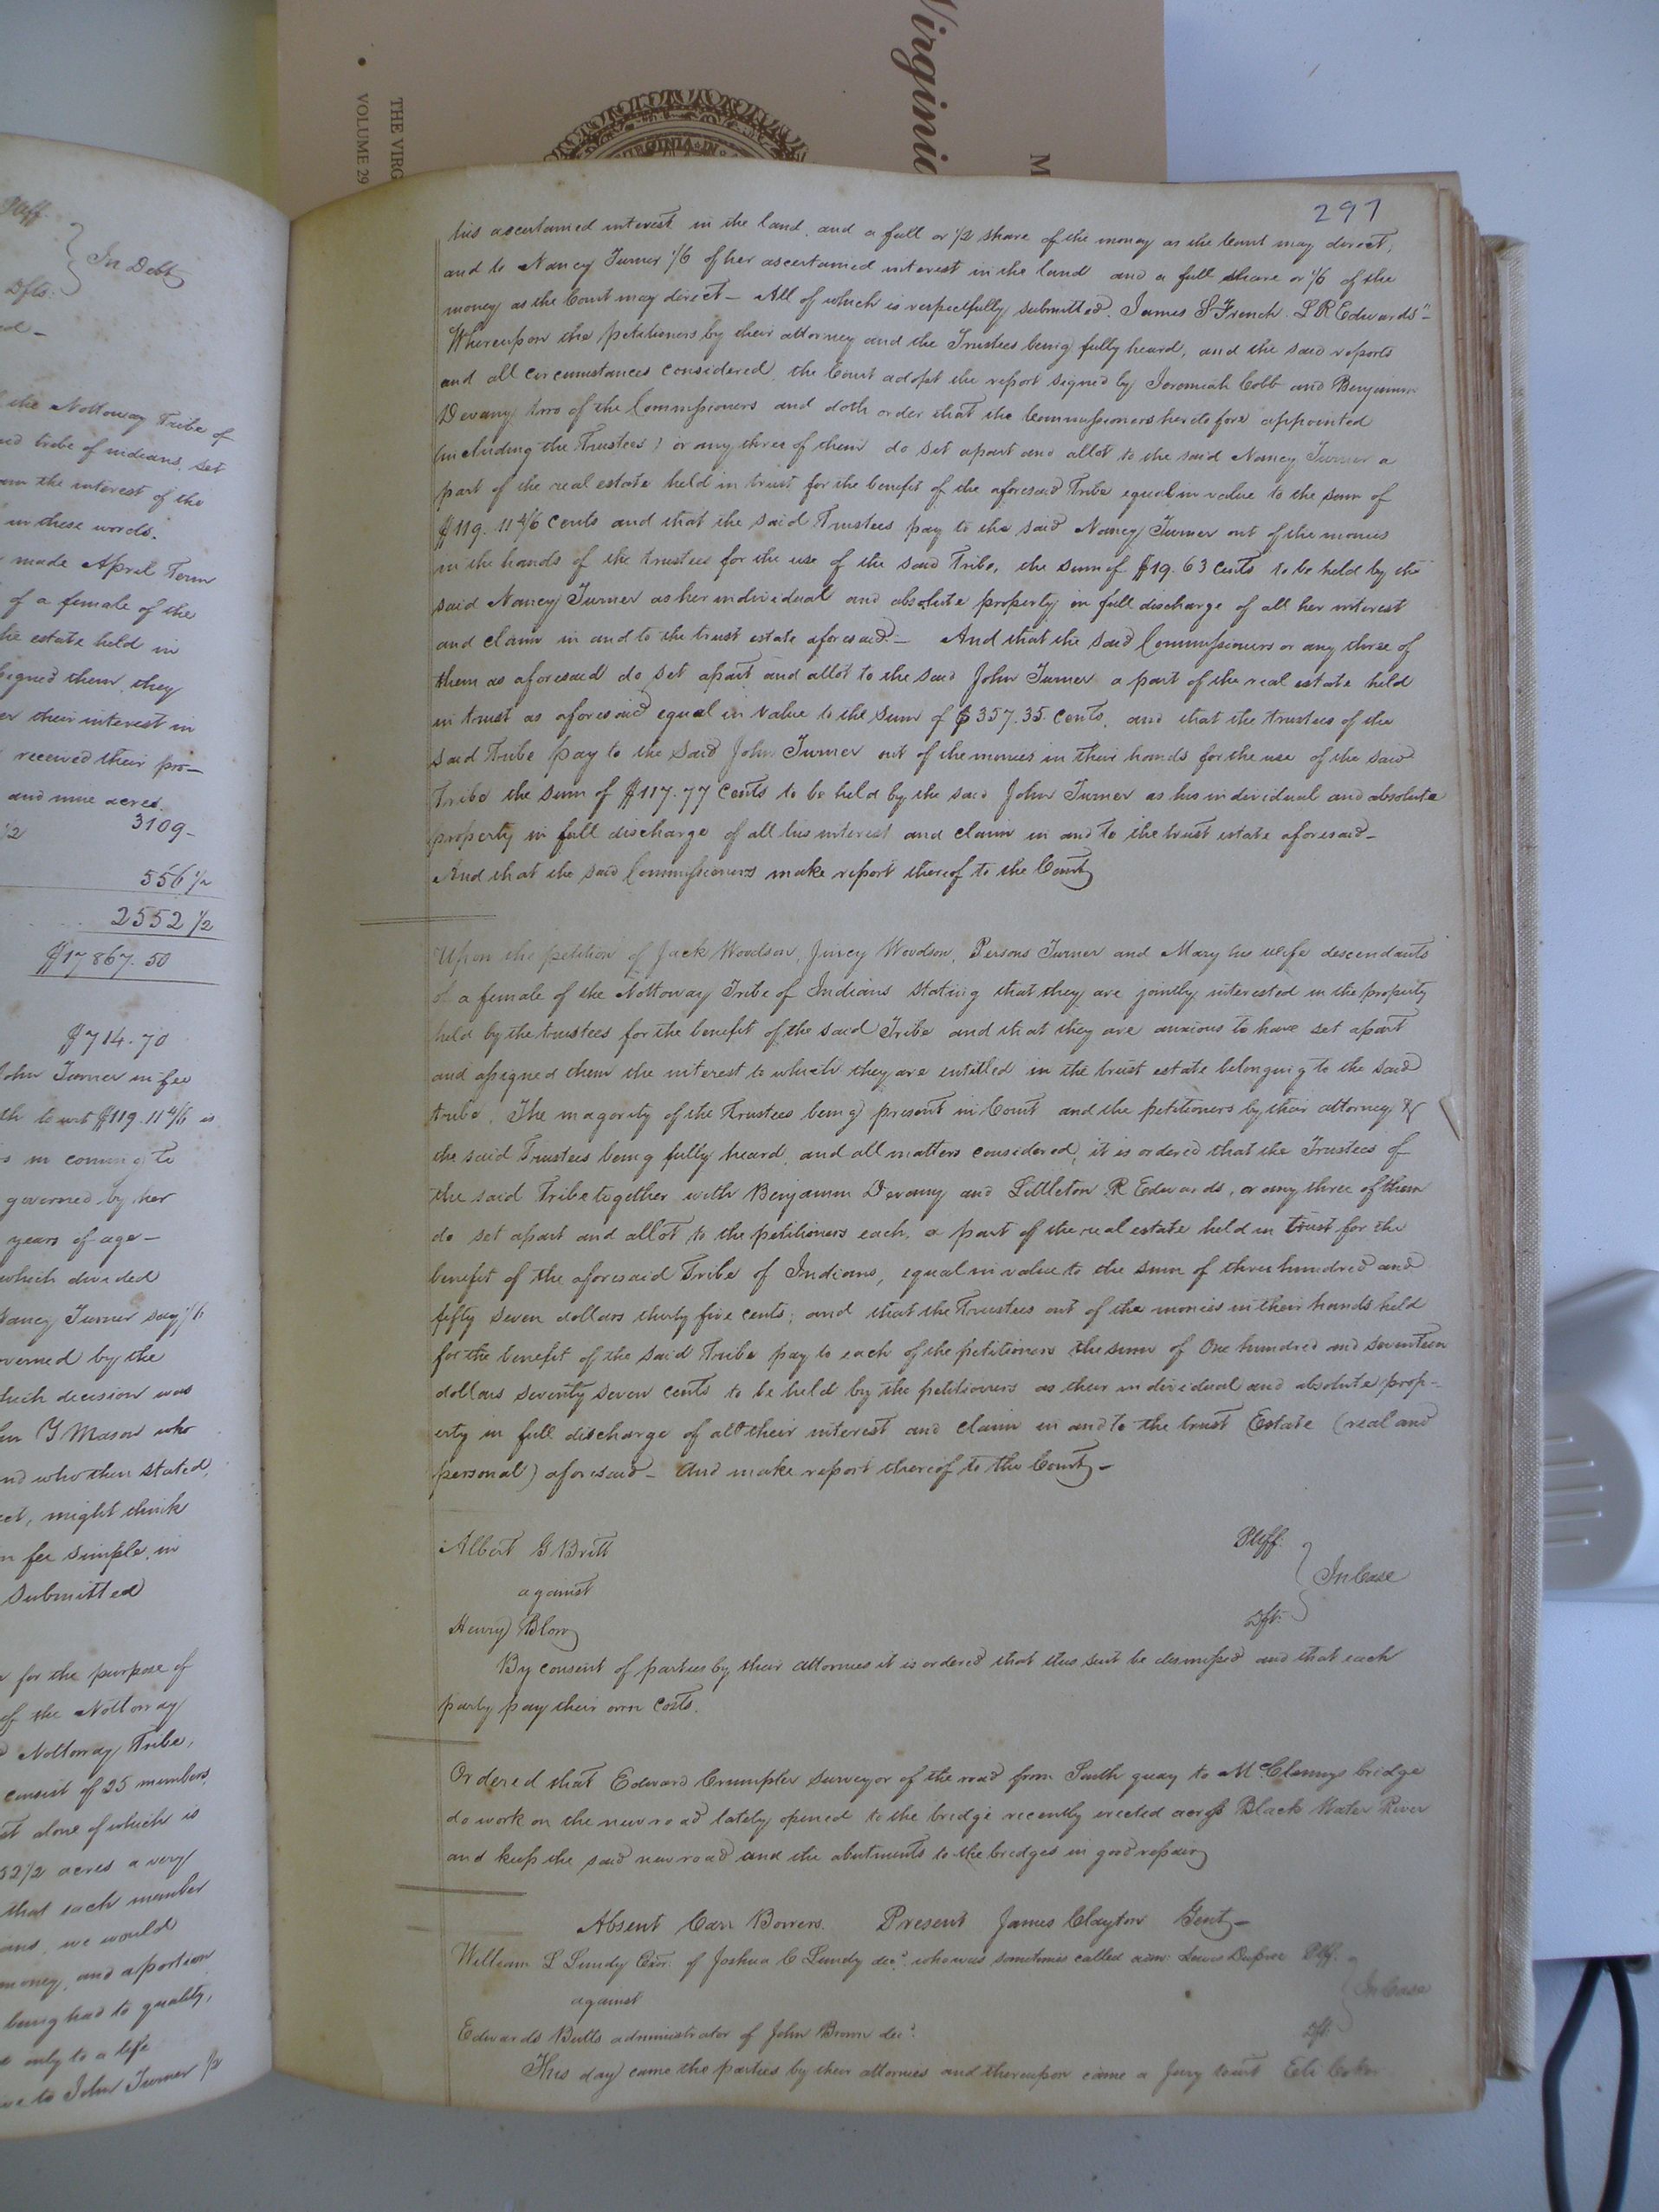 Virginia
M
THE VIRG
VOLUME 29
VIRGINIA IN
Plff.
In Debt
Dfts.
the Nottoway Tribe of
tribe of indians, set
the interest of the
in these words.
made April Term
of a female of the
estate held in
signed them, they
their interest in
received their pro-
and nine acres.
1/2 3109-
556 1/2
2552 1/2
$17867.50
$714.70
John Turner in fee
to wit $119.11 4/6 is
in coming to
governed by her
years of age-
which divided
Nancy Turner say 1/6
governed by the
which decision was
Y Mason who
and who then stated,
might think
fee simple, in
submitted
for the purpose of
of the Nottoway
Nottoway Tribe,
consist of 25 members,
alone of which is
52 1/2 acres a very
that each member
we would
money, and a portion
being had to quality,
only to a life
to John Turner 1/2
297
his ascertained interest in the land, and a full or 1/2 share of the money as the Court may direct,
and to Nancy Turner 1/6 of her ascertained interest in the land and a full share or 1/6 of the
money as the Court may direct- All of which is respectfully submitted. James S French. L R Edwards"-
Whereupon the petitioners by their attorney and the Trustees being fully heard, and the said reports
and all circumstances considered, the Court adopt the report signed by Jeremiah Cobb and Benjamin
Devany two of the Commissioners and doth order that the Commissioners heretofore appointed
(including the Trustees) or any three of them do set apart and allot to the said Nancy Turner a
part of the real estate held in trust for the benefit of the aforesaid Tribe equal in value to the sum of
$119.11 4/6 cents and that the said Trustees pay to the said Nancy Turner out of the monies
in the hands of the trustees for the use of the said Tribe, the sum of $19.63 cents to be held by the
said Nancy Turner as her individual and absolute property in full discharge of all her interest
and claim in and to the trust estate aforesaid.- And that the said Commissioners or any three of
them as aforesaid do set apart and allot to the said John Turner a part of the real estate held
in trust as aforesaid equal in value to the sum of $357.35 cents, and that the trustees of the
said Tribe pay to the said John Turner out of the monies in their hands for the use of the said
Tribe the sum of $117.77 cents to be held by the said John Turner as his individual and absolute
property in full discharge of all his interest and claim in and to the trust estate aforesaid-
And that the said Commissioners make report thereof to the Court
Upon the petition of Jack Woodson, Jincy Woodson, Persons Turner and Mary his wife descendants
of a female of the Nottoway Tribe of Indians stating that they are jointly interested in the property
held by the trustees for the benefit of the said Tribe and that they are anxious to have set apart
and assigned them the interest to which they are entitled in the trust estate belonging to the said
tribe. The magority of the Trustees being present in Court and the petitioners by their attorney &
the said Trustees being fully heard, and all matters considered, it is ordered that the Trustees of
the said Tribe together with Benjamin Devany and Littleton R Edwards, or any three of them
do set apart and allot to the petitioners each, a part of the real estate held in trust for the
benefit of the aforesaid Tribe of Indians, equal in value to the sum of three hundred and
fifty seven dollars thirty five cents; and that the Trustees out of the monies in their hands held
for the benefit of the said Tribe pay to each of the petitioners the sum of One hundred and seventeen
dollars seventy seven cents to be held by the petitioners as their individual and absolute prop-
erty in full discharge of all their interest and claim in and to the trust Estate (real and
personal) aforesaid- And make report thereof to the Court-
Albert G Britt Plff.
against In Case
Henry Blow Dft.
By consent of parties by their attornies it is ordered that this suit be dismissed and that each
party pay their own costs.
Ordered that Edward Crumpler surveyor of the road from South quay to McClennys bridge
do work on the new road lately opened to the bridge recently erected across Black Water River
and keep the said new road and the abutments to the bridges in good repair
Absent Carr Bowers. Present James Clayton Gent-
William L Lundy Exor. of Joshua C Lundy decd. who was sometimes called Lewis Dupree Plff.
against In Case
Edwards Butts administrator of John Brown decd. Dft.
This day came the parties by their attornies and thereupon came a Jury towit Eli Coker